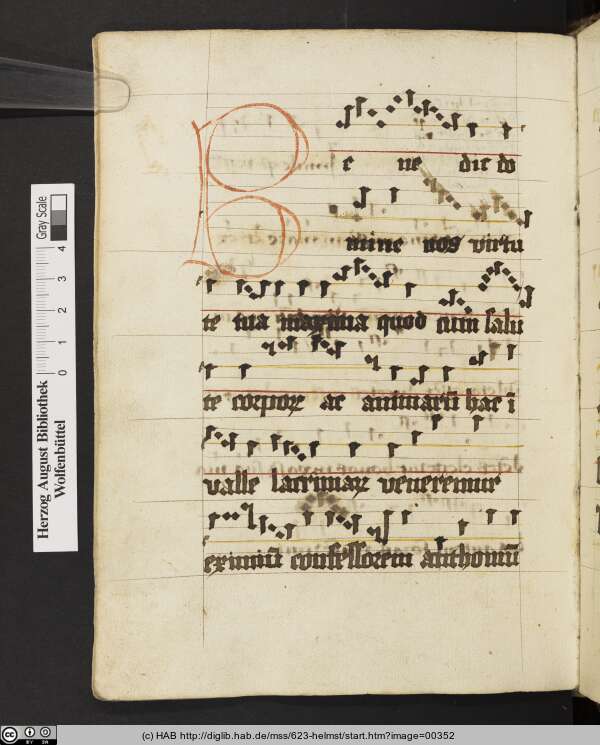 B e ne dic do
mine nos virtu
te tua maxima quod cum salu
te corporꝝ ac animarū hac ī
valle lacrimaꝝ veneremur
eximiū confessorem anthoniū
Herzog August Bibliothek
Wolfenbüttel
Gray Scale
0 1 2 3 4
(c) HAB http://diglib.hab.de/mss/623-helmst/start.htm?image=00352
cc BY SA